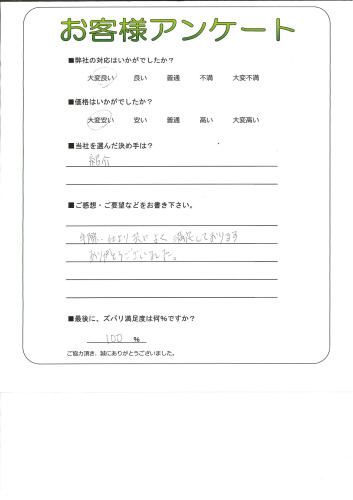 お客様アンケート
■弊社の対応はいかがでしたか?
大変良い 良い 普通 不満 大変不満
■価格はいかがでしたか?
大変安い 安い 普通 高い 大変高い
■当社を選んだ決め手は?
紹介
■ご感想・ご要望などをお書き下さい。
手際、仕上り共によく満足しております
ありがとうございました。
■最後に、ズバリ満足度は何%ですか?
100 %
ご協力頂き、誠にありがとうございました。